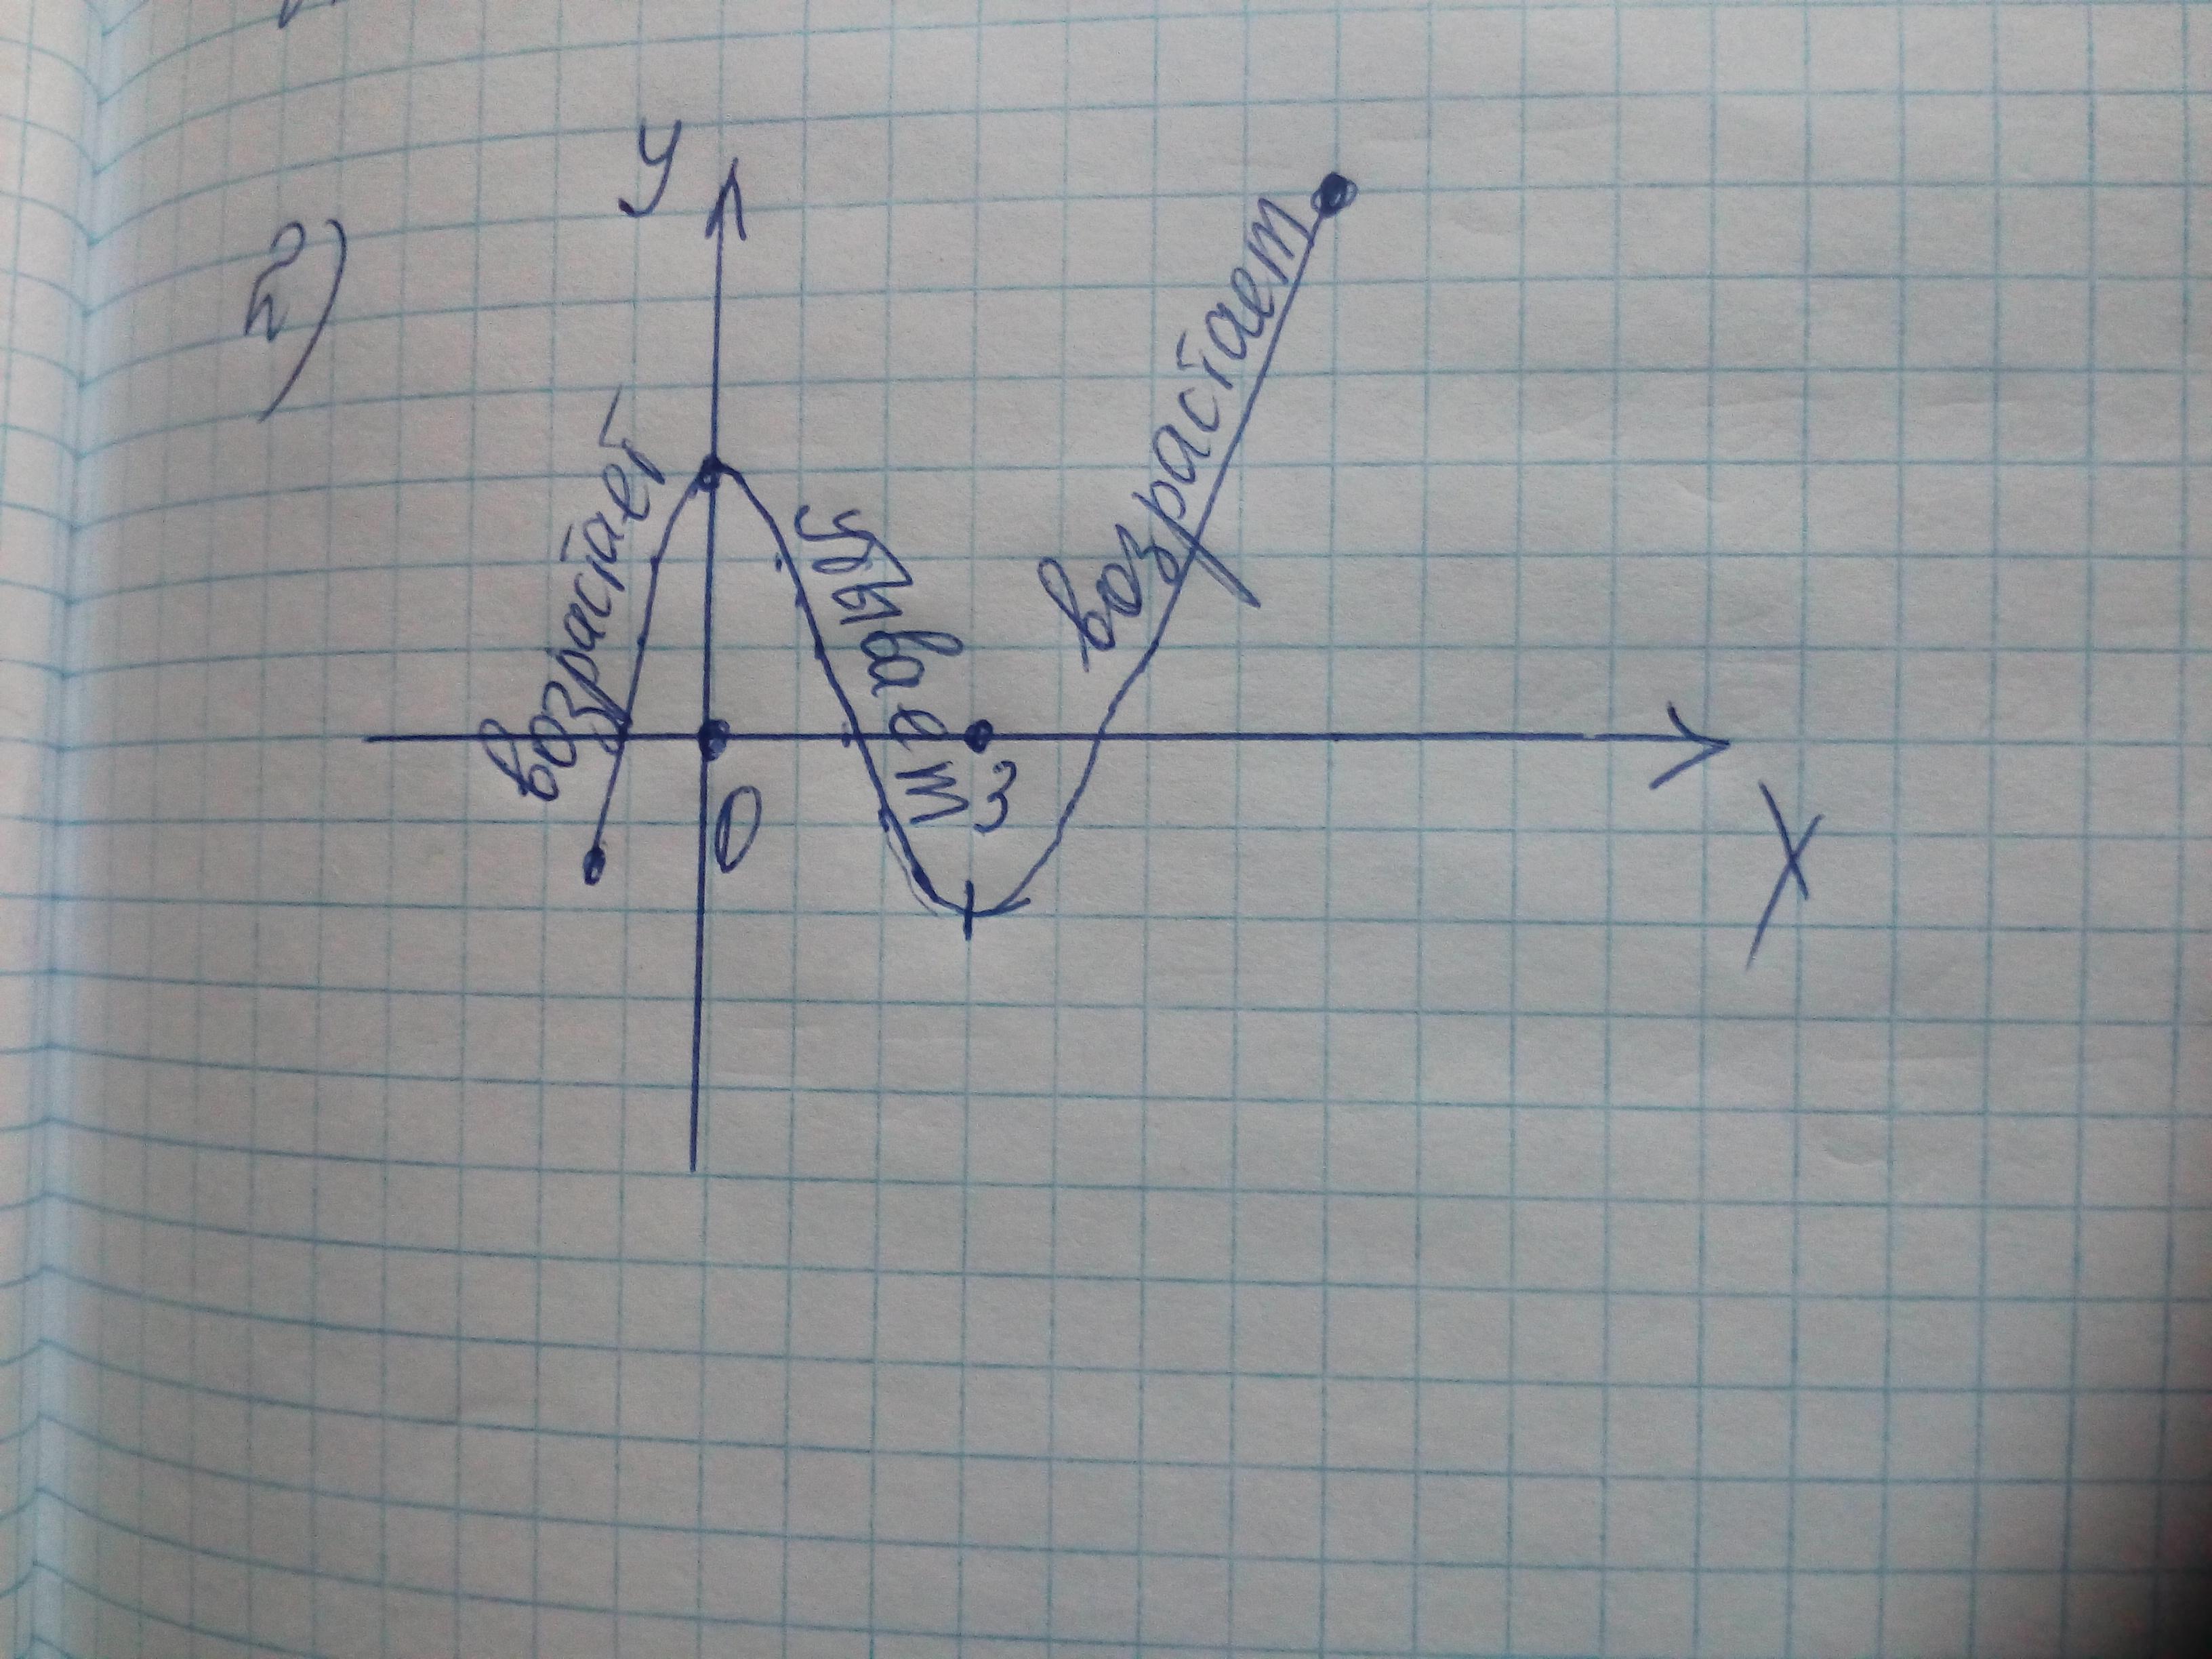 у
возрастает
убывает
возрастает
0
3
х